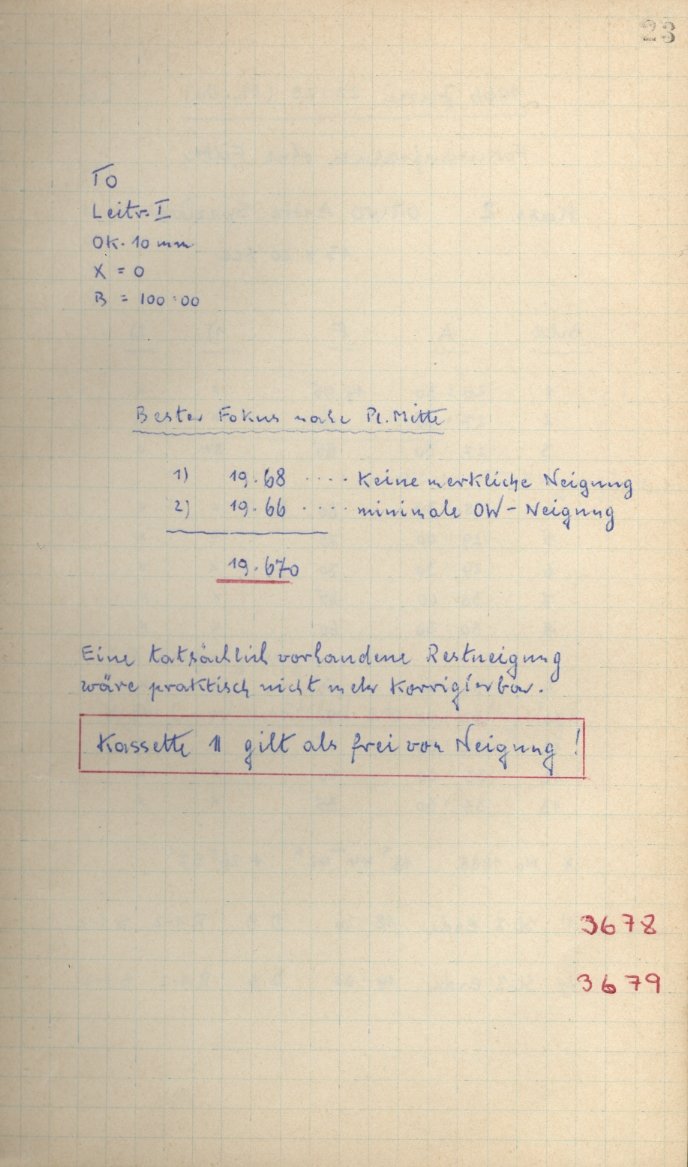 23
TO
Leitr. I
Ok. 10 mm
X = 0
B = 100:00
Bester Fokus nahe Pl. Mitte
1) 19.68 .... Keine merkliche Neigung
2) 19.66 .... minimale OW-Neigung
19.670
Eine tatsächlich vorhandene Restneigung
wäre praktisch nicht mehr korrigierbar.
Kassette II gilt als frei von Neigung!
3678
3679